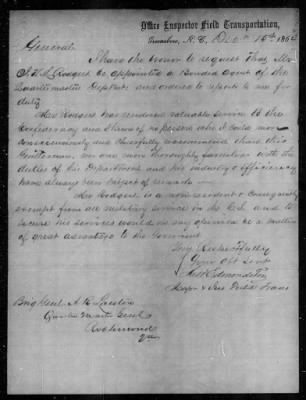 Office Inspector Field Transportation,
Greensboro, N.C., Dec 15th 186
General
I have the honor to request that Mr
be appointed a Bonded Agent of the
Quartermaster Dept and ordered to report to me for
duty
Mr Rodgers has rendered valuable service to the
Confederacy and I know of no person who I could more
conscientiously and cheerfully recommend than this
Gentleman, no one more thoroughly familiar with the
duties of his Department and his industry & efficiency
have always been subject of remark
Mr Rodgers is a non-resident & consequently
exempt from all military service in the C.S. and to
secure his services would in my opinion be a matter
of great advantage to the Government
Very Respectfully
Your Obt Servt
Edmondston
Major & Ins Field Trans
Brig Genl A. R. Lawton
Quarter Master Genl
Richmond
Va